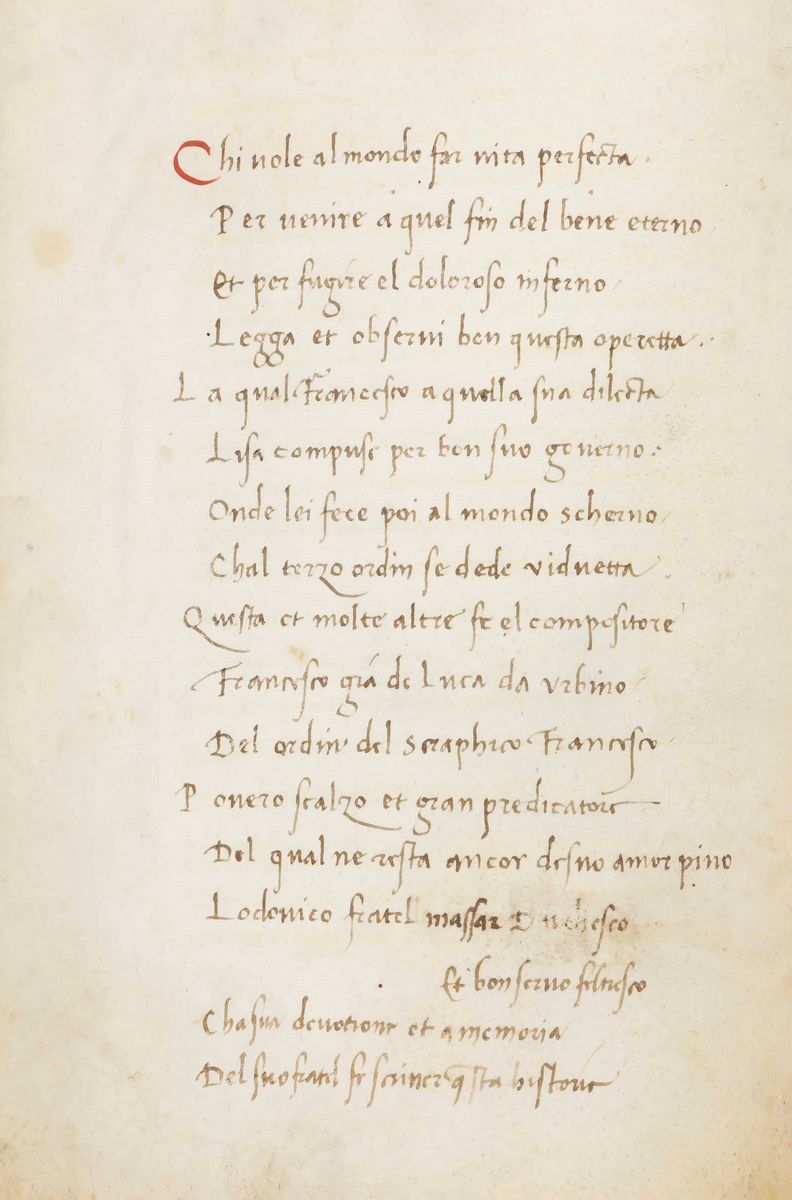 Chi uole al mondo far uita perfecta.
Per uenire a quel fin del bene eterno
Et per fugire el doloroso inferno
Legga et obserui ben questa operetta.
La qual Francesco a quella sua dilecta
Lisa compuse per ben suo gouerno:
Onde lei fece poi al mondo scherno
Chal terzo ordin se dede viduetta.
Questa et molte altre fe el compositore
Francesco già de Luca da vrbino
Del ordin del Seraphico Francesco
Pouero scalzo et gran predicatore
Del qual ne resta ancor de suo amor pino
Lodouico fratel massar
Et bon seruo feltresco
Cha sua deuotione et a memoria
Del suo fratel fe scriuer qsta historia